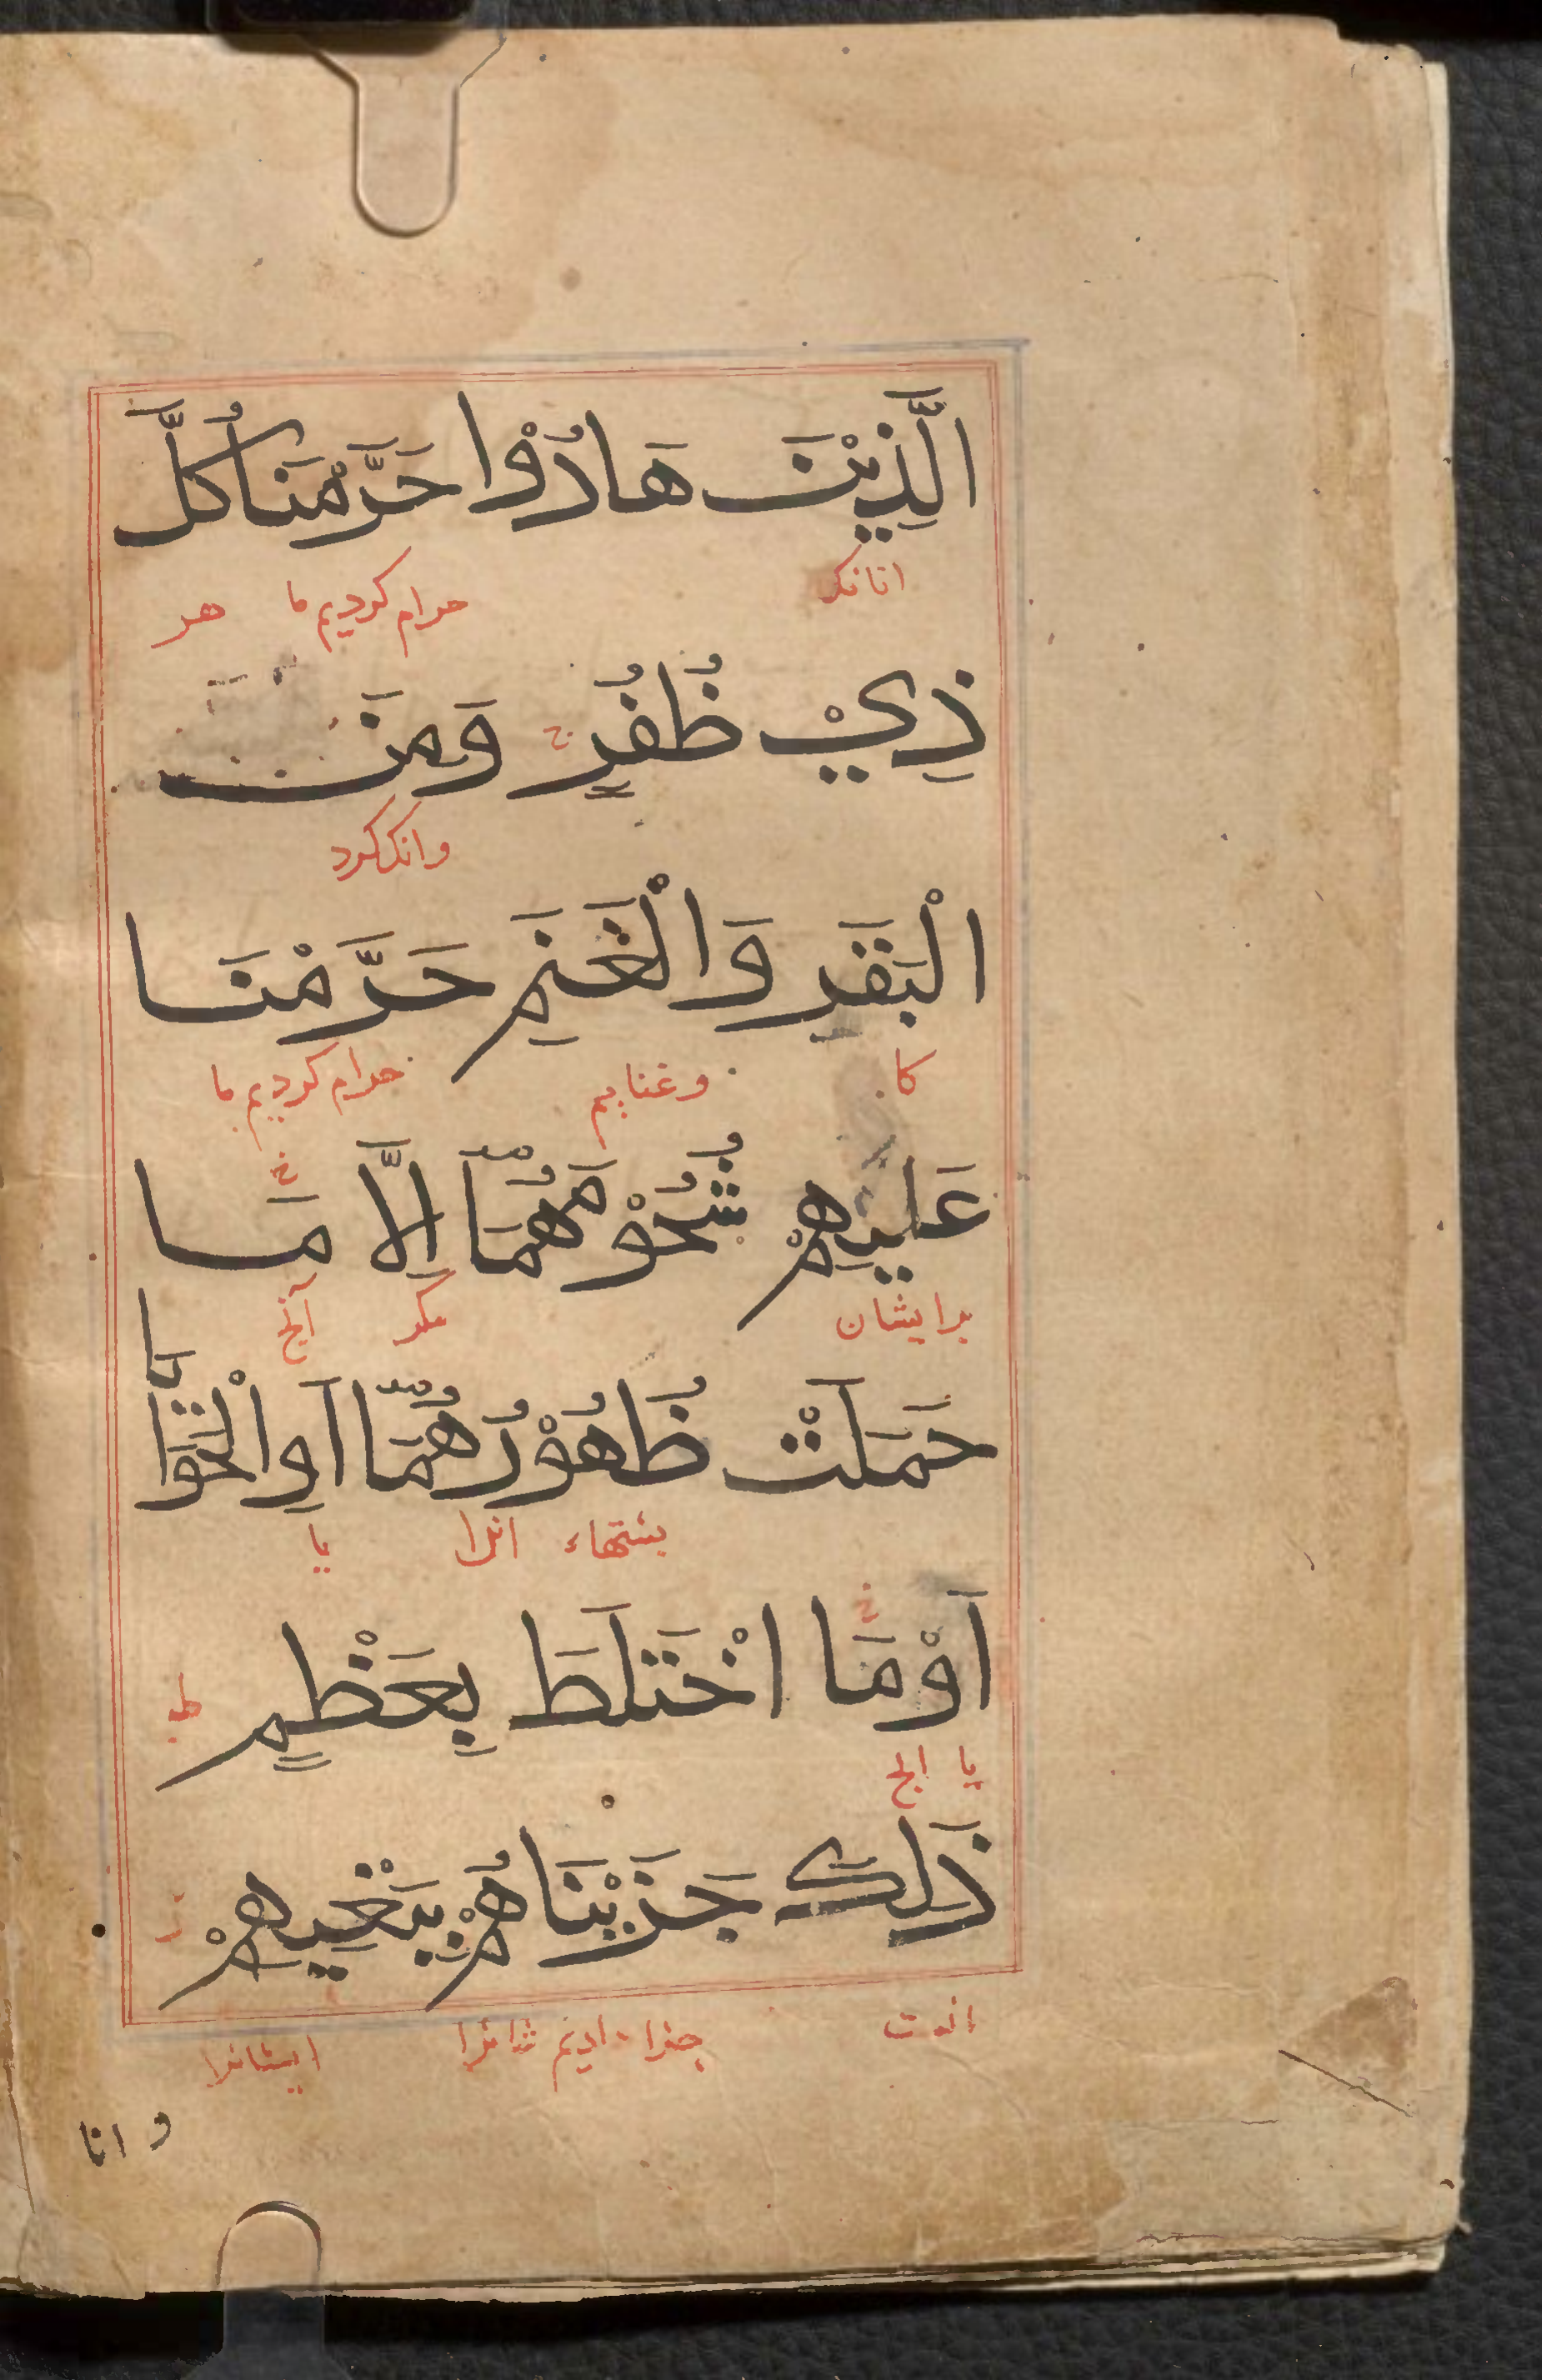 الَّذِيْنَ هَادُوْا حَرَّمْنَا كُلَّ
انانكر حرام كرديم ما هر
ذِيْ ظُفُرٍ وَمِنَ
وانكر كرد
الْبَقَرِ وَالْغَنَمِ حَرَّمْنَا
كا وغنايم حرام كرديم ما
عَلَيْهِمْ شُحُوْمَهُمَا اِلَّا مَا
برايشان مكر آنچ
حَمَلَتْ ظُهُوْرُهُمَا اَوِ الْحَوَايَا
بشتهاء انرا يا
اَوْ مَا اخْتَلَطَ بِعَظْمٍ ط
يا انچ
ذَلِكَ جَزَيْنَاهُمْ بِبَغْيِهِمْ
جزا داديم ايشانرا
وانا